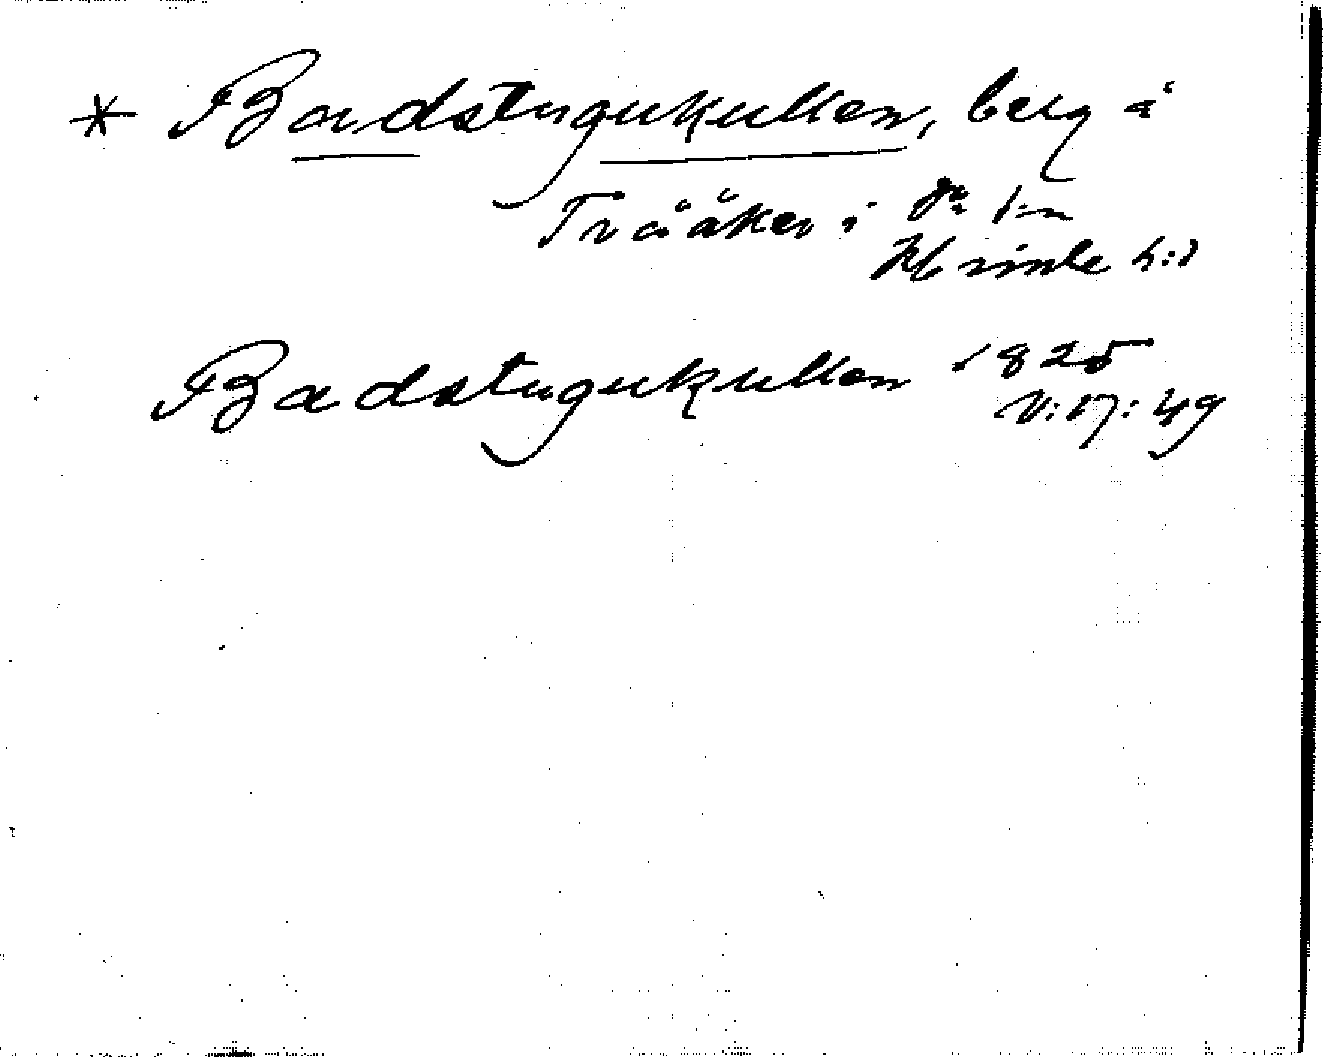 * Badstugukullen, berg å
Trååker i sn
Himle h:d
Badstugukullen 1825
V:17:49